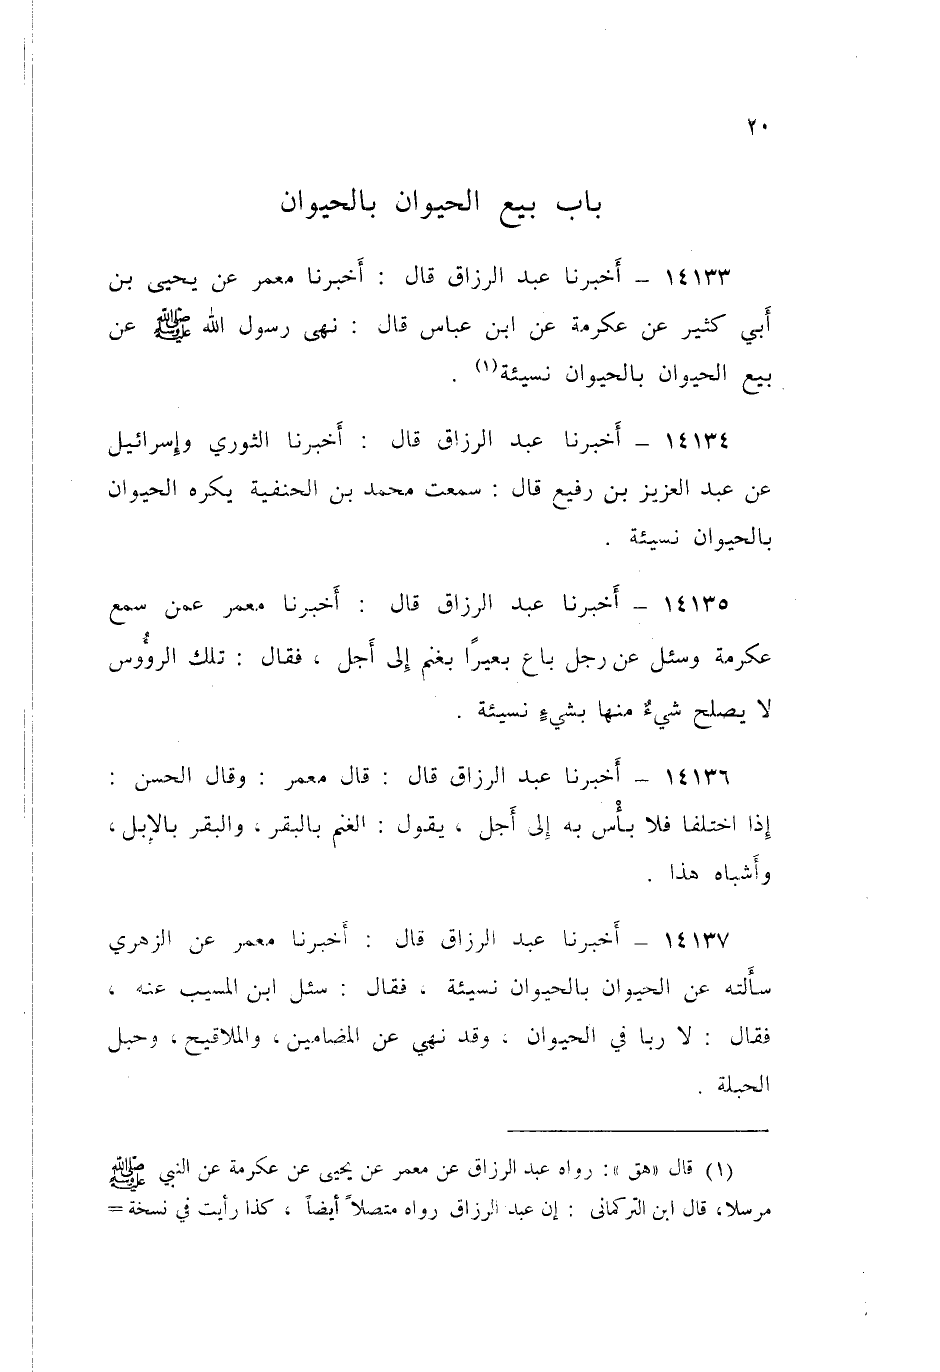 ٢٠
باب بيع الحيوان بالحيوان
١٤١٣٣ - أَخبرنا عبد الرزاق قال : أَخبرنا معمر عن يحيى بن
أَبي كثير عن عكرمة عن ابن عباس قال : نهى رسول الله ﷺ عن
بيع الحيوان بالحيوان نسيئة(١) .
١٤١٣٤ - أَخبرنا عبد الرزاق قال : أَخبرنا الثوري وإسرائيل
عن عبد العزيز بن رفيع قال : سمعت محمد بن الحنفية يكره الحيوان
بالحيوان نسيئة .
١٤١٣٥ - أَخبرنا عبد الرزاق قال : أَخبرنا معمر عمن سمع
عكرمة وسئل عن رجل باع بعيرًا بغنم إلى أَجل ، فقال : تلك الروُّوس
لا يصلح شيءٌ منها بشيءٍ نسيئة .
١٤١٣٦ - أَخبرنا عبد الرزاق قال : قال معمر : وقال الحسن :
إذا اختلفا فلا بأْس به إلى أَجل ، يقول : الغنم بالبقر ، والبقر بالإبل ،
وأَشباه هذا .
١٤١٣٧ - أَخبرنا عبد الرزاق قال : أَخبرنا معمر عن الزهري
سأَلته عن الحيوان بالحيوان نسيئة ، فقال : سئل ابن المسيب عنه ،
فقال : لا ربا في الحيوان ، وقد نهي عن المضامين ، والملاقيح ، وحبل
الحبلة .
(١) قال «هق» : رواه عبد الرزاق عن معمر عن يحيى عن عكرمة عن النبي ﷺ
مرسلا، قال ابن التركمانى : إن عبد الرزاق رواه متصلاً أيضاً ، كذا رأيت في نسخة =